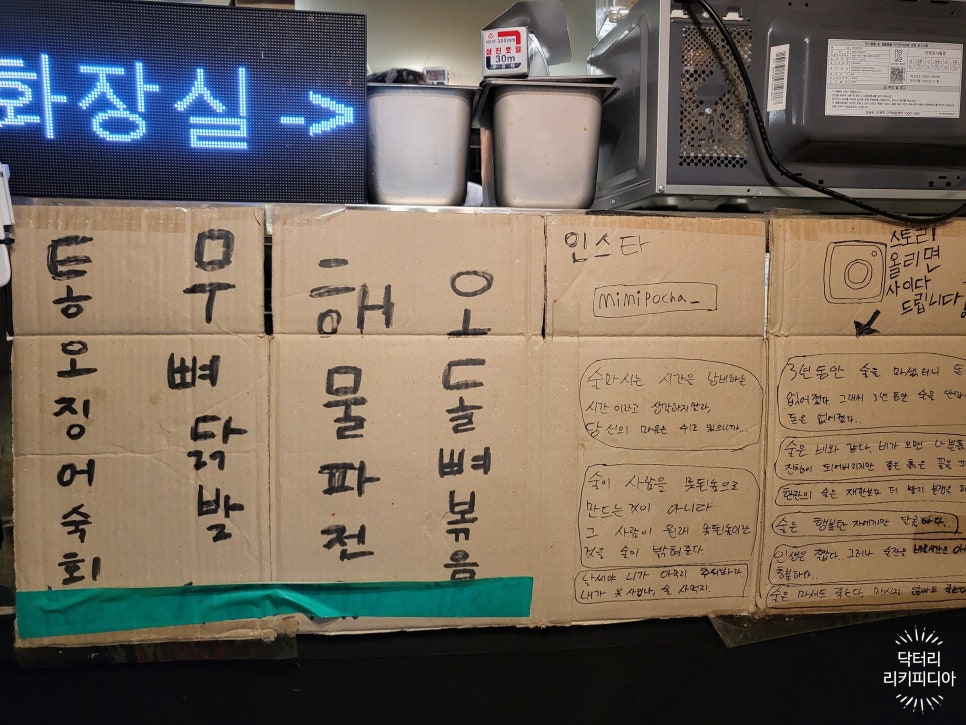 화장실 ->
300mm
삼진호일
30m
통오징어숙회
무뼈닭발
해물파전
오돌뼈볶음
인스타
mimipocha_
술마시는 시간을 낭비하는
시간이라고 생각하지만라,
당신의 마음은 쉬고 있으니까..
술이 사람을 못된놈으로
만드는것이 아니다
그 사람이 원래 못된놈이라는
것을 술이 밝혀준다.
날씨야 니가 아무리 추워봐라
내가 옷 사입나, 술 사먹지.
스토리
올리면
사이다
드립니다
3년동안 술을 마셨더니 돈
없어졌다 그래서 3년동안 술을
돈은 없어졌다..
술은 비와 같다. 비가 오면
진창이 되어버리지만 좋은 흙은 꽃을
한잔의 술은 재판보다 더 빨리
술은 행복한 자에게만 달콤하다..
인생은 짧다.. 그러나 술잔을
충분하다..
술은 마셔도 죽는다. 마시지 않아도
닥터리
리키피디아